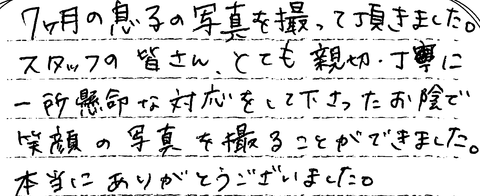 7ヶ月の息子の写真を撮って頂きました。
スタッフの皆さん、とても親切・丁寧に
一所懸命な対応をして下さったお陰で
笑顔の写真を撮ることができました。
本当にありがとうございました。